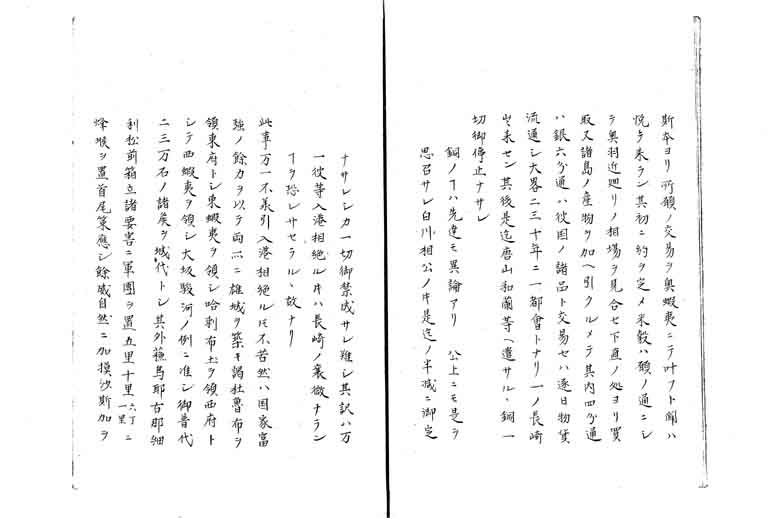 斯本ヨリ所願ノ交易ヲ奥蝦夷ニテ叶フト聞ハ
悦ラ来ラン其初ニ約ヲ定メ米穀ハ願ノ通ニシ
テ奥羽近廻リノ相場ヲ見合セ下直ノ処ヨリ買
取又諸島ノ産物ヲ加ヘ引クルメテ其内四分通
ハ銀六分通ハ彼国ノ諸品ト交易セハ逐日物貨
流通シ大畧二三十年ニ一都會トナリ一ノ長崎
出来セン其後是迄唐山和蘭等ヘ遣サルヽ銅一
切御停止ナサレ
銅ノヿハ先達モ異論アリ 公上ニモ是ヲ
思召サレ白川相公ノ時是迄ノ半減ニ御定
ナサレシカ一切御禁成サレ難シ其訳ハ万
一彼等入港相絶ルキハ長崎ノ衰微ナラン
ヿヲ恐レサセラルヽ故ナリ
此事万一不承引入港相絶ルモ不苦然ハ国家富
強ノ餘力ヲ以テ両所ニ雄城ヲ築キ謁杜魯布ヲ
領東府トシ東蝦夷ヲ領シ哈剌布土ヲ領西府ト
シテ西蝦夷ヲ領シ大坂駿河ノ例ニ准シ御普代
二三万石ノ諸矦ヲ城代トシ其外蘓烏耶古那細
利松前箱立諸要害ニ軍團ヲ置五里十里六丁一里ニ
烽堠ヲ置首尾策應シ餘威自然ニ加摸沙斯加ヲ